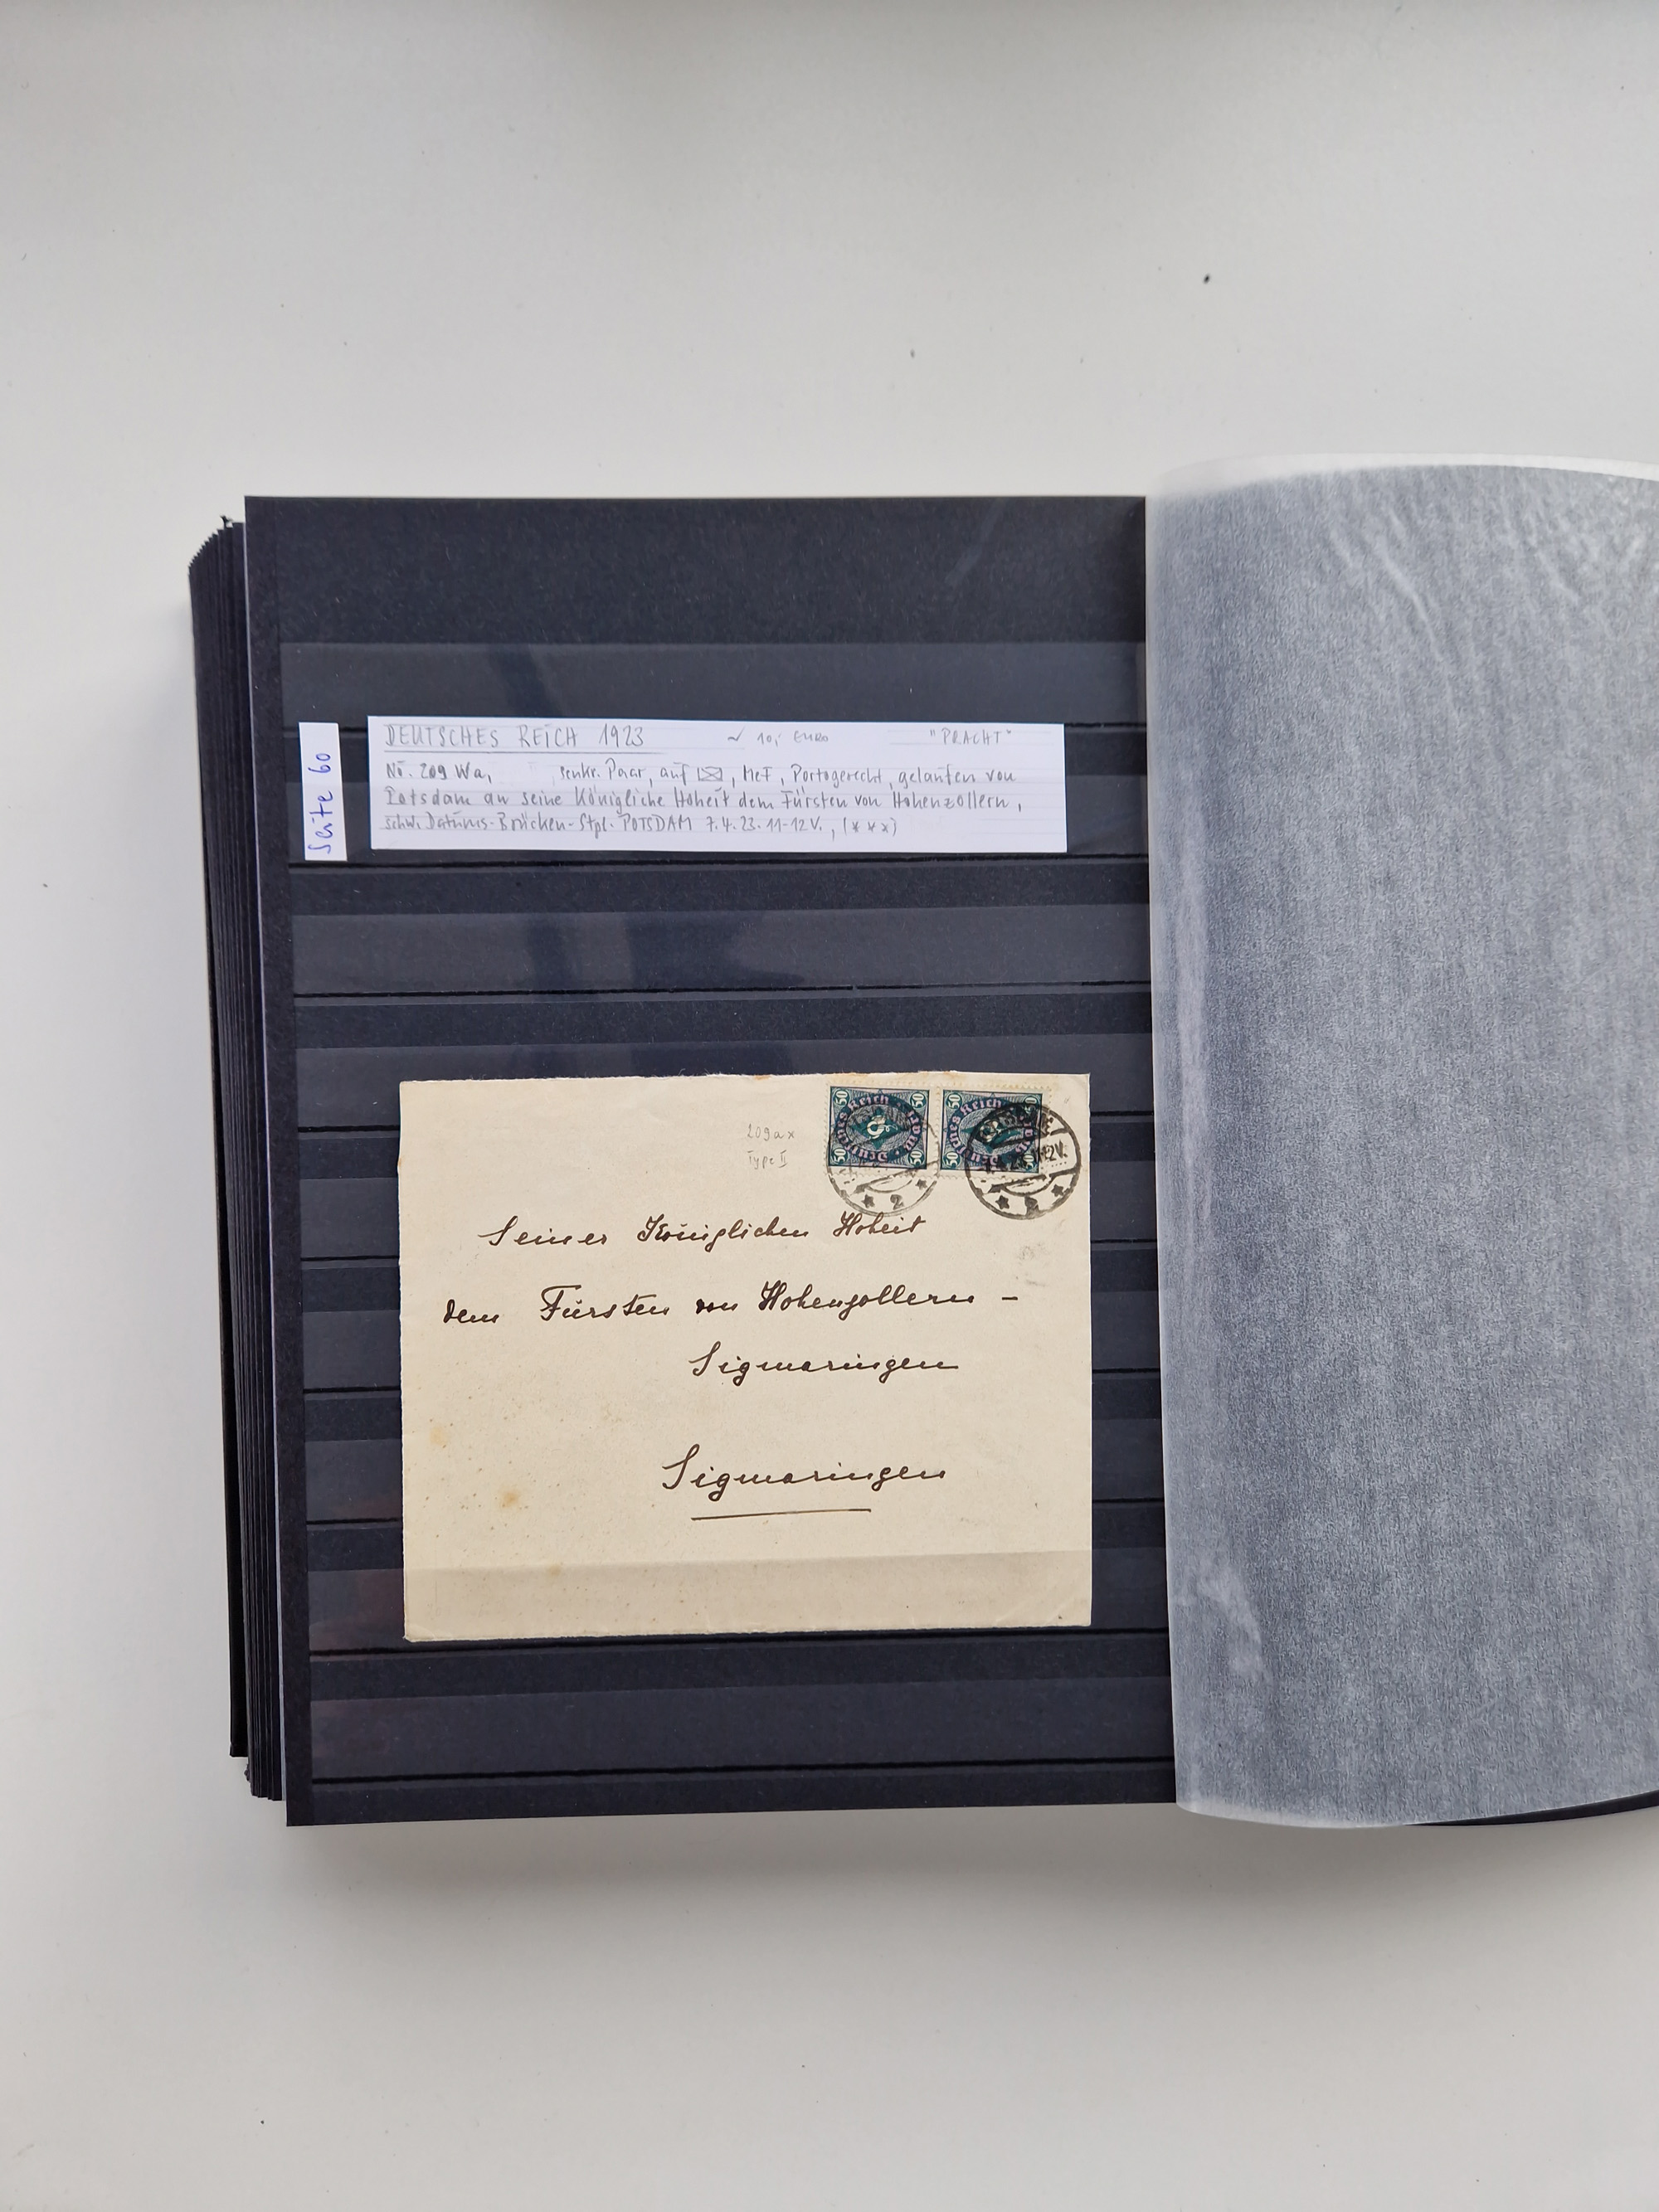 Seite 60
DEUTSCHES REICH 1923 ~ 10,- EURO "PRACHT"
No. 209 Wa, senkr. Paar, auf ✉, MeF, Portogerecht, gelaufen von
Potsdam an seine Königliche Hoheit dem Fürsten von Hohenzollern,
schw. Datums-Brücken-Stpl. POTSDAM 7.4.23.11-12V., (***)
50 50 50 50
Deutsches Reich
50 50 50
Deutsches Reich
12V.
* 2 *
209ax
Type II
Seiner Königlichen Hoheit
dem Fürsten von Hohenzollern -
Sigmaringen
Sigmaringen